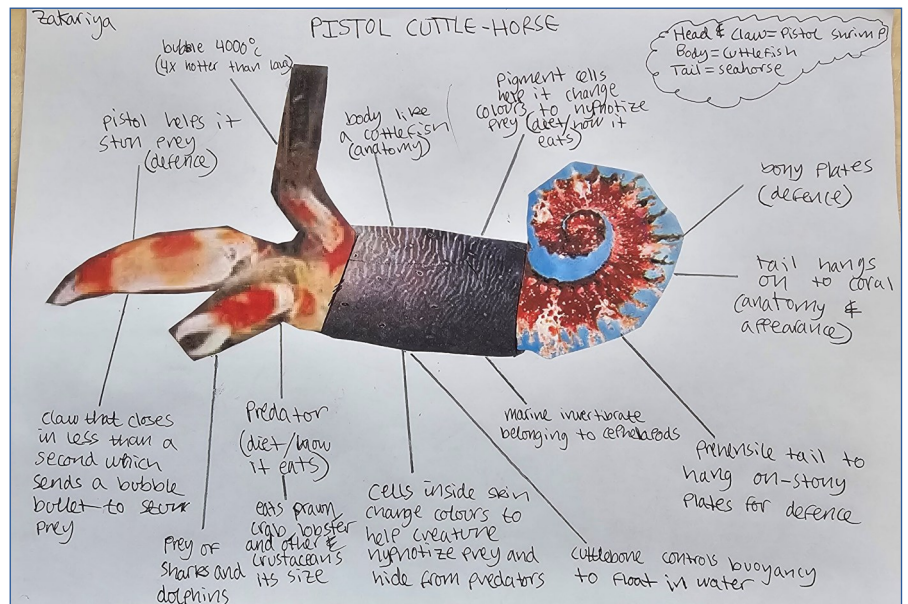 Zakariya
PISTOL CUTTLE-HORSE
Head & Claw= Pistol Shrimp
Body=Cuttlefish
Tail=seahorse
bubble 4000°c
(4x hotter than lava)
pistol helps it
stun prey
(defence)
body like
a cottlefish
(anatomy)
Pigment cells
here it change
colours to hypnotize
prey (diet/how it
eats)
bony Plates
(defence)
tail hangs
on to coral
(anatomy &
appearance)
claw that closes
in less than a
second which
sends a bubble
bullet to stun
prey
Prey of
sharks and
dolphins
Predator
(diet/how
it eats)
eats prawn,
crab, lobster
and other &
crustaceans
its size
cells inside skin
change colours to
help creature
hypnotize prey and
hide from predators
marine invertibrate
belonging to cephelapods
cuttlebone controls buoyancy
to float in water
Prehensile tail to
hang on-stony
Plates for defence